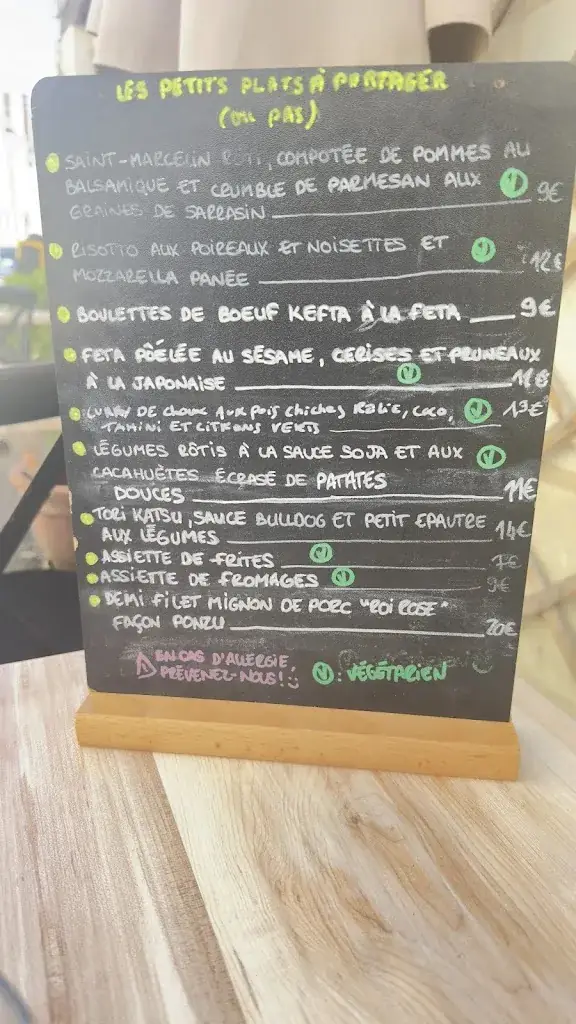 LES PETITS PLATS À PARTAGER
(OU PAS)
SAINT-MARCELIN RÔTI, COMPOTÉE DE POMMES AU
BALSAMIQUE ET CRUMBLE DE PARMESAN AUX V 9€
GRAINES DE SARRASIN
RISOTTO AUX POIREAUX ET NOISETTES ET V 12€
MOZZARELLA PANÉE
BOULETTES DE BOEUF KEFTA À LA FETA 9€
FETA POÊLÉE AU SÉSAME, CERISES ET PRUNEAUX
À LA JAPONAISE V 11€
CURRY DE choux aux pois chiches Rôtis, coco, V 13€
TAHINI ET CITRONS VERTS
LÉGUMES RÔTIS À LA SAUCE SOJA ET AUX V
CACAHUÈTES ECRASÉ DE PATATES
DOUCES 11€
TORI KATSU, SAUCE BULLDOG ET PETIT EPAUTRE
AUX LÉGUMES 14€
ASSIETTE DE FRITES V 7€
ASSIETTE DE FROMAGES V 9€
DEMI FILET MIGNON DE PORC "ROI ROSE"
FAÇON PONZU 20€
EN CAS D'ALLERGIE,
PRÉVENEZ-NOUS!
V : VÉGÉTARIEN